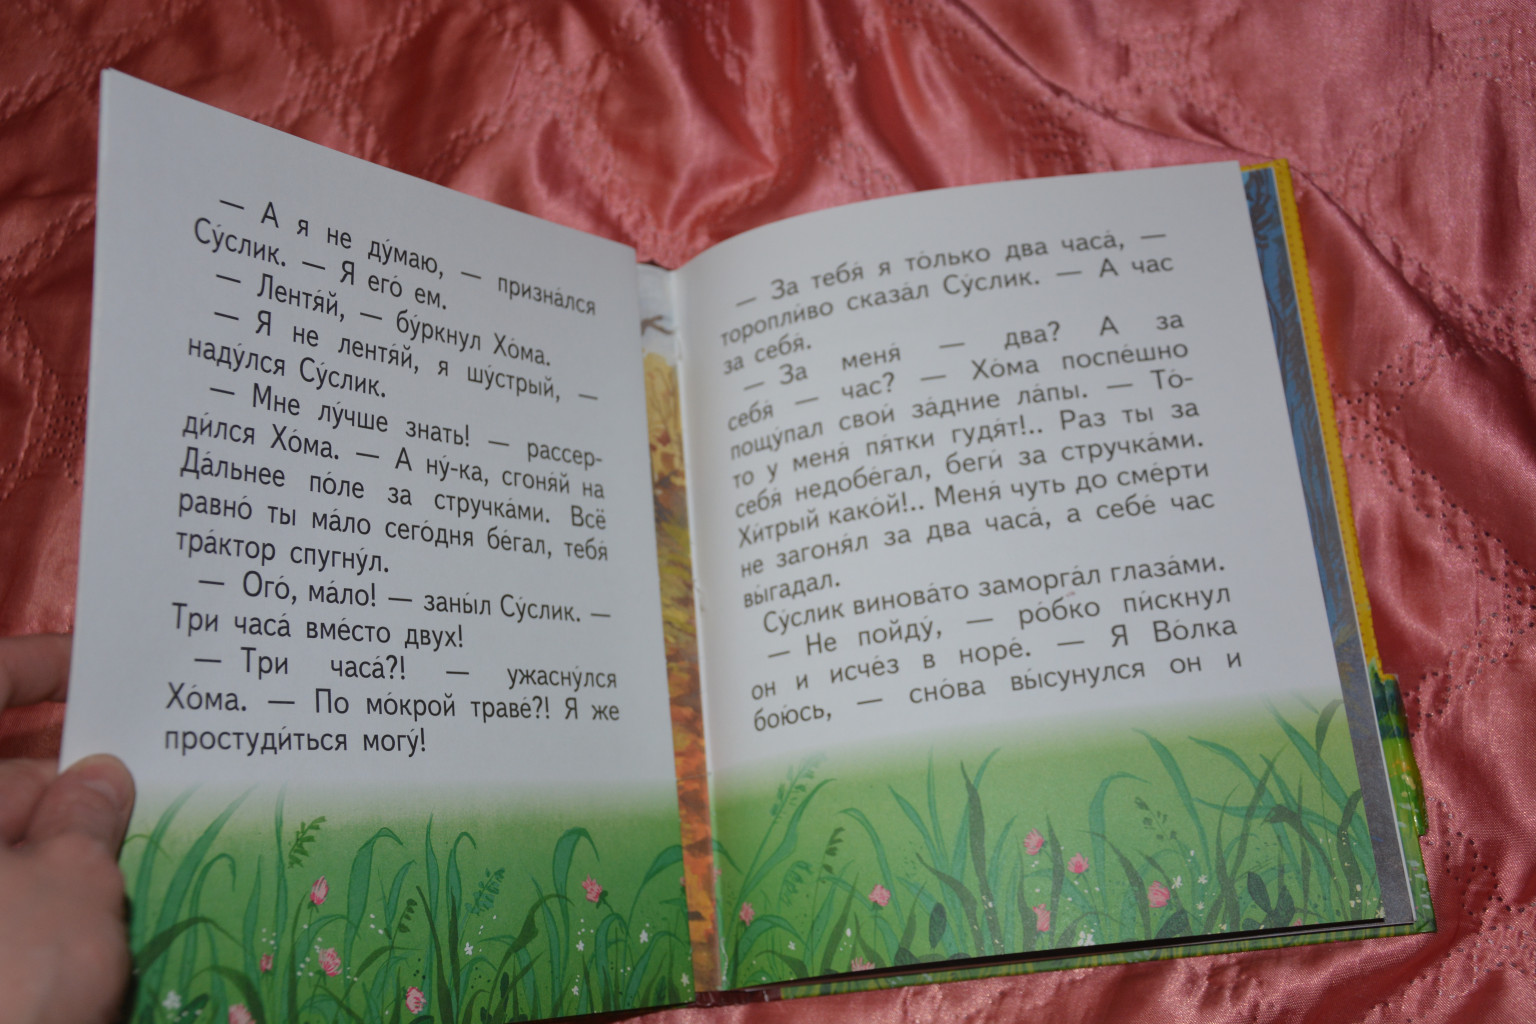 — А я не ду́маю, — призна́лся
Су́слик. — Я его́ ем.
— Лентя́й, — бу́ркнул Хо́ма.
— Я не лентя́й, я шу́стрый, —
наду́лся Су́слик.
— Мне лу́чше знать! — рассер-
ди́лся Хо́ма. — А ну́-ка, сгоня́й на
Да́льнее по́ле за стручка́ми. Всё
равно́ ты ма́ло сего́дня бе́гал, тебя́
тра́ктор спугну́л.
— Ого́, ма́ло! — заны́л Су́слик. —
Три часа́ вме́сто двух!
— Три часа́?! — ужасну́лся
Хо́ма. — По мо́крой траве́?! Я же
простуди́ться могу́!
— За тебя́ я то́лько два часа́, —
торопли́во сказа́л Су́слик. — А час
за себя́.
— За меня́ — два? А за
себя́ — час? — Хо́ма поспе́шно
пощу́пал свои́ за́дние ла́пы. — То́-
то у меня́ пя́тки гудя́т!.. Раз ты за
себя́ недобе́гал, беги́ за стручка́ми.
Хи́трый како́й!.. Меня́ чуть до сме́рти
не загоня́л за два часа́, а себе́ час
вы́гадал.
Су́слик винова́то заморга́л глаза́ми.
— Не пойду́, — ро́бко пи́скнул
он и исче́з в норе́. — Я Во́лка
бою́сь, — сно́ва вы́сунулся он и